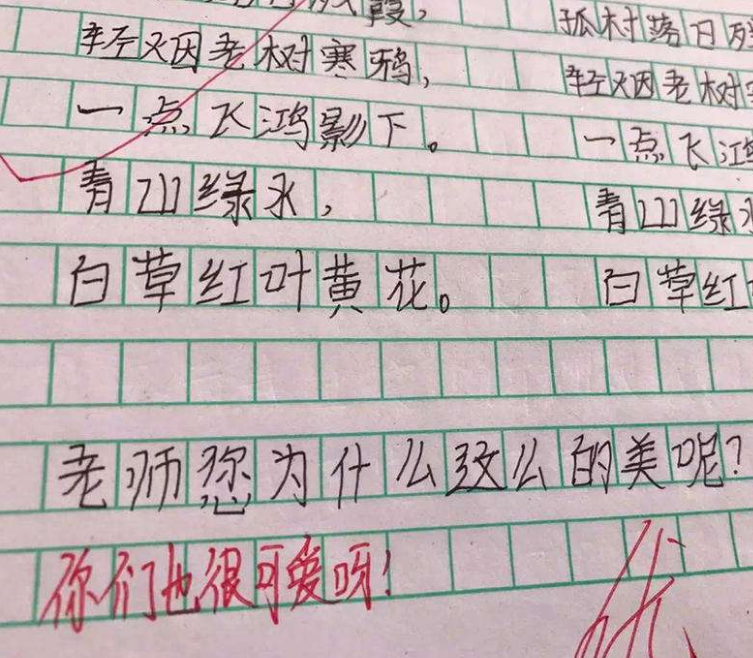 霞,
轻烟老树寒鸦,
一点飞鸿影下。
青山绿水,
白草红叶黄花。
孤村落日
轻烟老树
一点飞
青山绿
白草红
老师您为什么这么的美呢?
你们也很可爱呀!
优